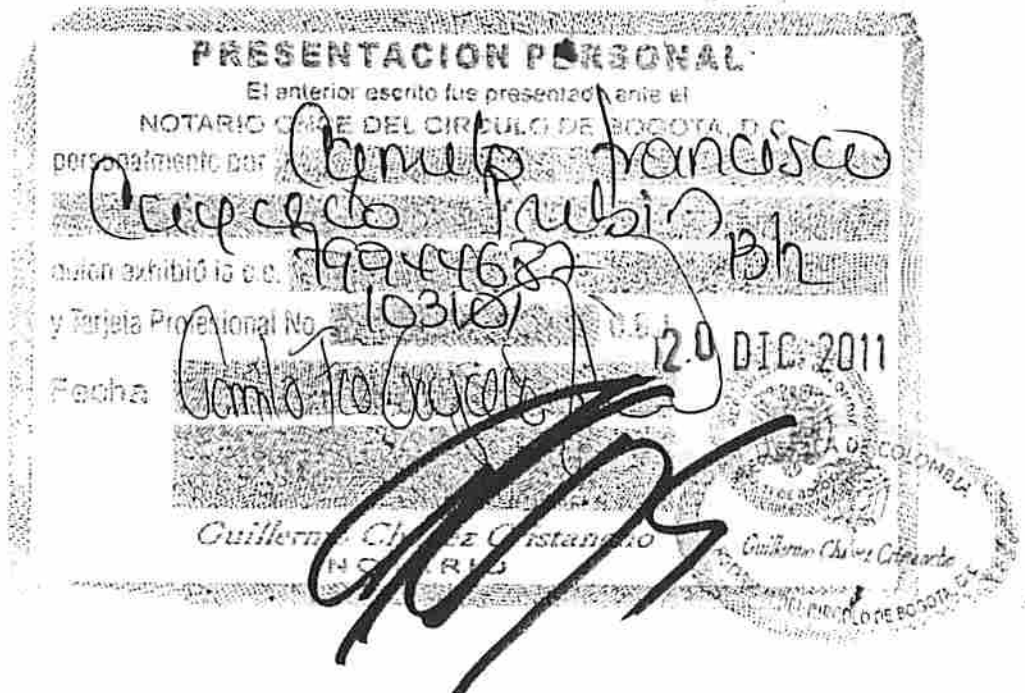 PRESENTACION PERSONAL
El anterior escrito fue presentado ante el
NOTARIO ONCE DEL CIRCULO DE BOGOTA, D.C.
personalmente por Camilo Francisco
Caycedo
quien exhibió la c.c.
y Tarjeta Profesional No. 103101 C.S.J.
20 DIC 2011
Fecha Camilo Fco Caycedo
Guillermo Chavez Cristancho
NOTARIO
DE COLOMBIA
Guillermo Chavez Cristancho
DEL CIRCULO DE BOGOTA